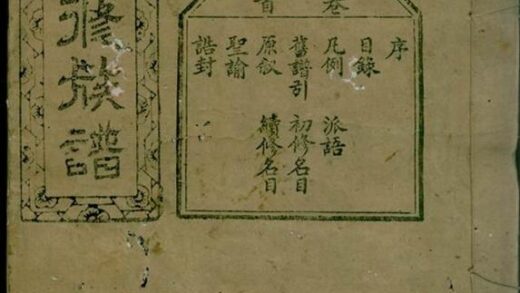 卷首
序
目錄
凡例 派語
舊譜引 初修名目
原敘 續修名目
聖諭
誥封
修族譜